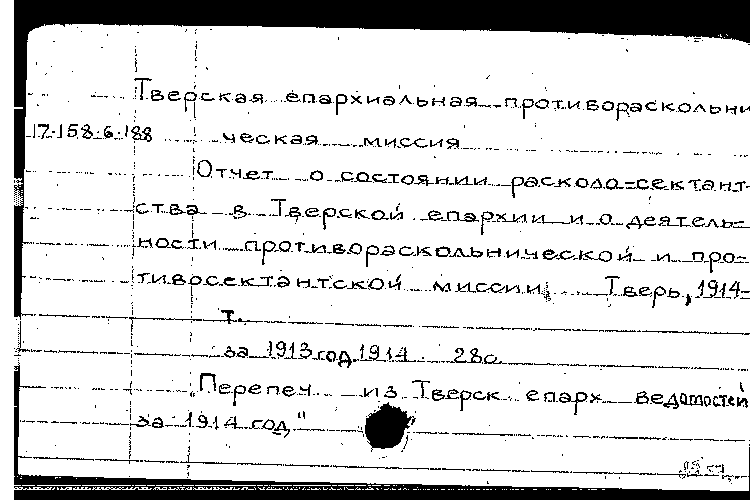 Тверская епархиальная противораскольни
17.158.6.188 ческая миссия
Отчет о состоянии раскола-сектант-
ства в Тверской епархии и о деятель-
ности противораскольнической и про-
тивосектантской миссии. Тверь, 1914-
т.
за 1913 год. 1914. 28с.
"Перепеч. из Тверск. епарх. ведомостей
за 1914 год"